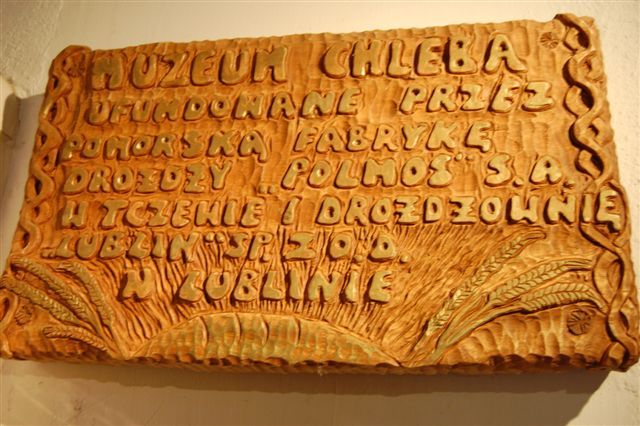 MUZEUM CHLEBA
UFUNDOWANE PRZEZ
POMORSKĄ FABRYKĘ
DROŻDŻY „POLMOS" S.A.
W TCZEWIE I DROŻDŻOWNIĘ
„LUBLIN" SP. Z O.O.
W LUBLINIE